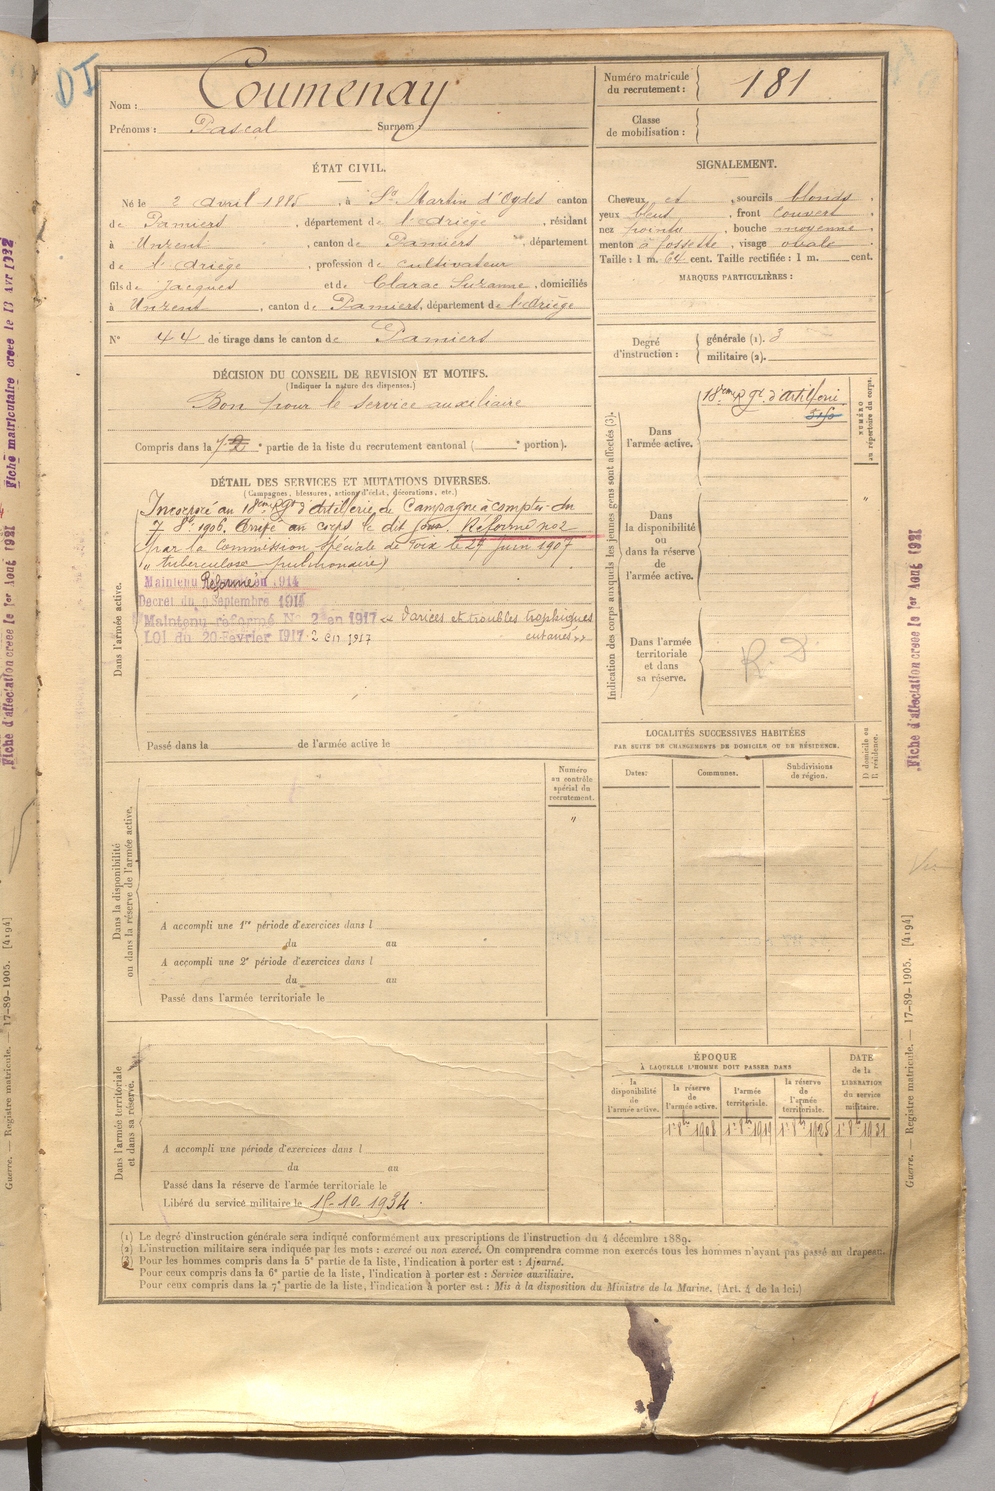 DI
Nom : Coumenay
Prénoms : Pascal Surnom :
Numéro matricule du recrutement : 181
Classe de mobilisation :
ÉTAT CIVIL.
Né le 2 Avril 1885, à St Martin d'Oydes canton
de Pamiers, département de l'Ariège, résidant
à Unzent, canton de Pamiers, département
de l'Ariège, profession de cultivateur
fils de Jacques et de Clarac Suzanne, domiciliés
à Unzent, canton de Pamiers, département de l'Ariège
N° 44 de tirage dans le canton de Pamiers
SIGNALEMENT.
Cheveux et, sourcils blonds,
yeux bleus, front couvert,
nez pointu, bouche moyenne,
menton à fossette, visage ovale
Taille : 1 m. 64 cent. Taille rectifiée : 1 m. cent.
MARQUES PARTICULIÈRES :
Degré d'instruction : générale (1). 3
militaire (2).
DÉCISION DU CONSEIL DE REVISION ET MOTIFS.
(Indiquer la nature des dispenses.)
Bon pour le service auxiliaire
Compris dans la e partie de la liste du recrutement cantonal ( e portion).
DÉTAIL DES SERVICES ET MUTATIONS DIVERSES.
(Campagnes, blessures, actions d'éclat, décorations, etc.)
Dans l'armée active.
Incorporé au 18ème Rgt d'Artillerie de Campagne à compter du
7 8bre 1906. Arrivé au corps le dit jour. Réformé no 2
par la Commission spéciale de Foix le 24 juin 1907
(" tuberculose pulmonaire)
Maintenu Réformé en 1914
Décret du 9 Septembre 1914
Maintenu réformé No 2 en 1917 « Varices et troubles trophiques
LOI du 20 Février 1917 cutanés »
Passé dans la de l'armée active le
Indication des corps auxquels les jeunes gens sont affectés (3).
Dans l'armée active.
18ème Rgt d'Artil
NUMÉRO au répertoire du corps.
"
Dans la disponibilité ou dans la réserve de l'armée active.
Dans l'armée territoriale et dans sa réserve.
LOCALITÉS SUCCESSIVES HABITÉES
PAR SUITE DE CHANGEMENTS DE DOMICILE OU DE RÉSIDENCE.
Dates: Communes. Subdivisions de région. D domicile ou R résidence.
Dans la disponibilité ou dans la réserve de l'armée active.
Numéro au contrôle spécial du recrutement.
"
A accompli une 1re période d'exercices dans l
du au
A accompli une 2e période d'exercices dans l
du au
Passé dans l'armée territoriale le
Dans l'armée territoriale et dans sa réserve.
A accompli une période d'exercices dans l
du au
Passé dans la réserve de l'armée territoriale le
Libéré du service militaire le 15-10-1934.
ÉPOQUE
À LAQUELLE L'HOMME DOIT PASSER DANS
la disponibilité de l'armée active. la réserve de l'armée active. l'armée territoriale. la réserve de l'armée territoriale. DATE de la LIBÉRATION du service militaire.
1r 8bre 1908 1r 8bre 1919 1r 8bre 1925 1r 8bre 1931
(1) Le degré d'instruction générale sera indiqué conformément aux prescriptions de l'instruction du 4 décembre 1889.
(2) L'instruction militaire sera indiquée par les mots : exercé ou non exercé. On comprendra comme non exercés tous les hommes n'ayant pas passé au drapeau.
(3) Pour les hommes compris dans la 5e partie de la liste, l'indication à porter est : Ajourné.
Pour ceux compris dans la 6e partie de la liste, l'indication à porter est : Service auxiliaire.
Pour ceux compris dans la 7e partie de la liste, l'indication à porter est : Mis à la disposition du Ministre de la Marine. (Art. 4 de la loi.)
Fiche d'affectation créée le 1er Août 1921
Guerre. — Registre matricule. — 17-89-1905. [4194]
Fiche matriculaire créée le 13 Avr 1932
Fiche d'affectation créée le 1er Août 1921
Guerre. — Registre matricule. — 17-89-1905. [4194]